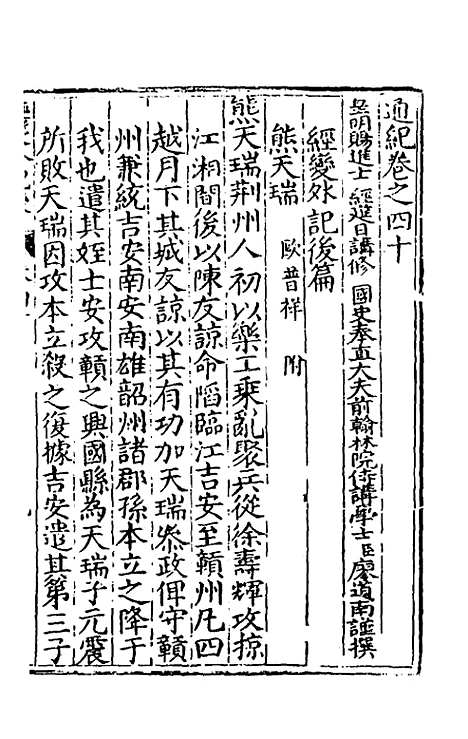 通紀卷之四十
皇明賜進士 經筵日講修 國史奉直大夫前翰林院侍講學士臣廖道南謹撰
經變外記後篇
熊天瑞 歐普祥 附
熊天瑞荆州人初以樂工乘亂聚兵從徐壽輝攻掠
江湘間後以陳友諒命䧟臨江吉安至贑州凡四
越月下其城友諒以其有功加天瑞叅政俾守贑
州兼統吉安南安南雄韶州諸郡孫本立之降于
我也遣其姪士安攻贑之興國縣為天瑞子元震
所敗天瑞因攻本立殺之復據吉安遣其第三子